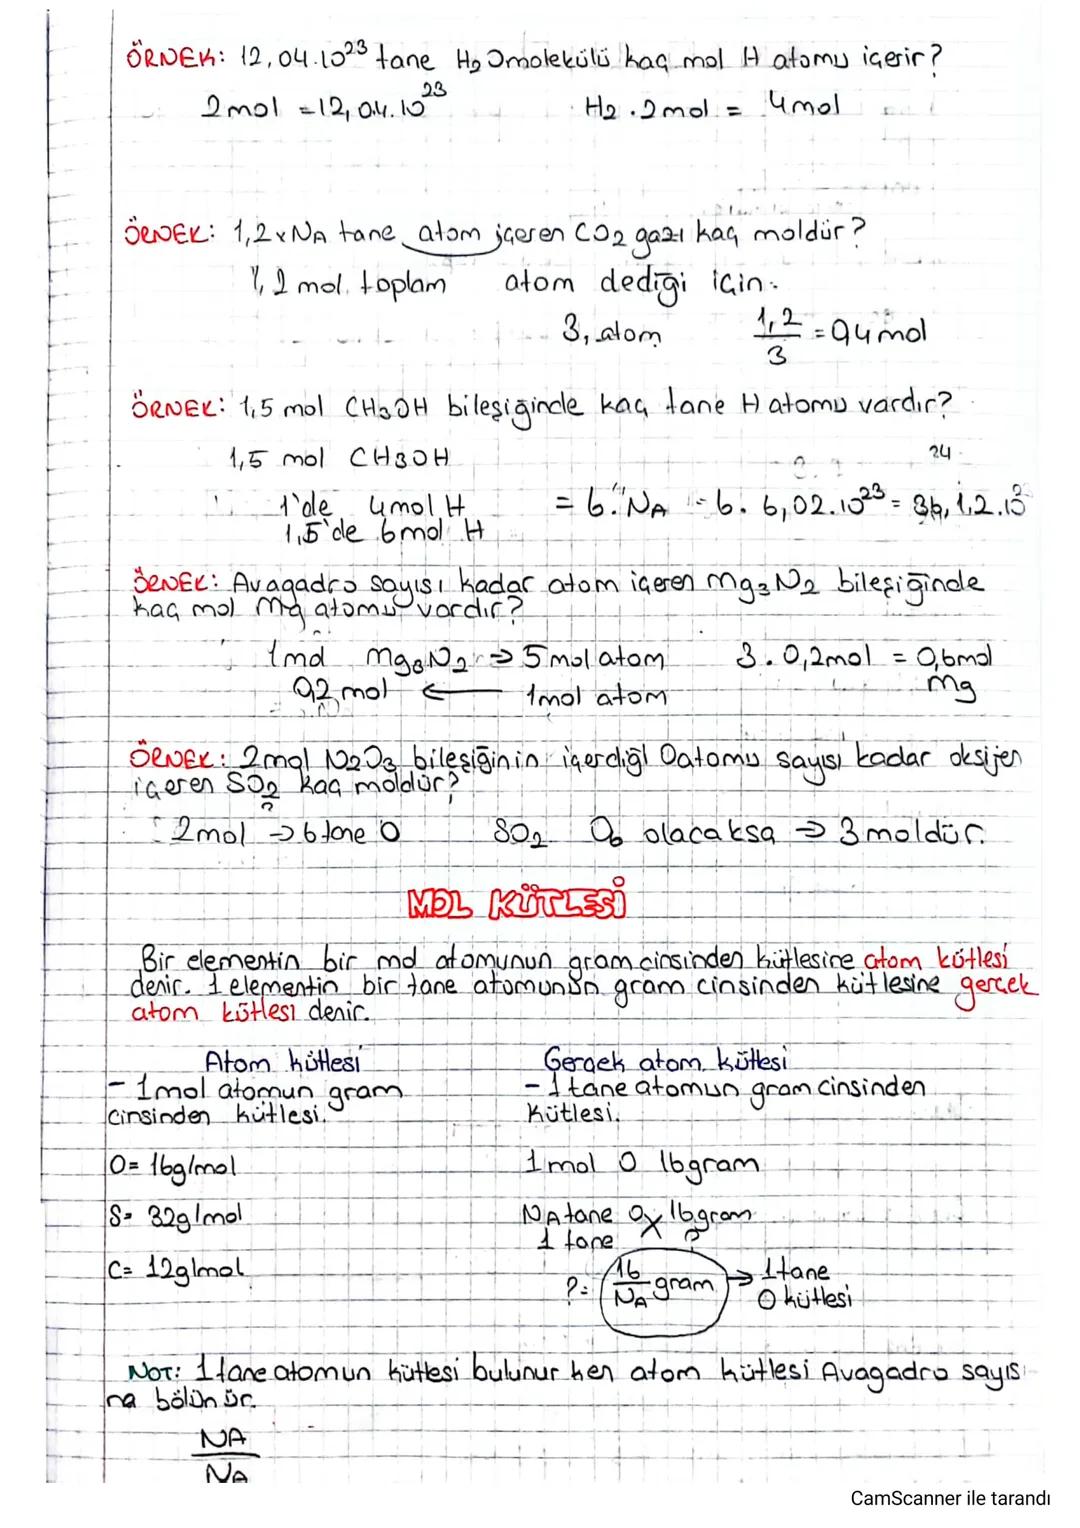 ÖRNEK: 12,04.10²³ tane H₂O molekülü kaç mol H atomu içerir?
2mol = 12,04.10²³ H₂.2mol = 4mol
ÖRNEK: 1,2xNA tane atom içeren CO₂ gazı kaç moldür?
1,2 mol toplam atom dediği için.
3, atom 1,2/3 = 0,4mol
ÖRNEK: 1,5 mol CH₃OH bileşiğinde kaç tane H atomu vardır?
1,5 mol CH3OH 24
1'de 4mol H = 6.NA = 6. 6,02.10²³ = 36,12.10²³
1,5'de 6mol H
ÖRNEK: Avagadro sayısı kadar atom içeren Mg₃N₂ bileşiğinde
kaç mol Mg atomu vardır?
1mol Mg₃N₂ ⇒ 5 mol atom 3.0,2mol = 0,6mol
0,2 mol ← 1mol atom Mg
ÖRNEK: 2mol N₂O₃ bileşiğinin içerdiği O atomu sayısı kadar oksijen
içeren SO₂ kaç moldür?
2mol → 6 tane O SO₂ O₆ olacaksa ⇒ 3 moldür.
MOL KÜTLESİ
Bir elementin bir mol atomunun gram cinsinden kütlesine atom kütlesi
denir. 1 elementin bir tane atomunun gram cinsinden kütlesine gerçek
atom kütlesi denir.
Atom kütlesi Gerçek atom kütlesi
- 1mol atomun gram - 1 tane atomun gram cinsinden
cinsinden kütlesi. kütlesi.
O= 16g/mol 1 mol O 16gram
S= 32g/mol NA tane O 16gram
1 tane ?
C= 12g/mol ?= 16/NA gram → 1 tane
O kütlesi
NOT: 1 tane atomun kütlesi bulunur ken atom kütlesi Avagadro sayısı
na bölünür.
NA
NA
CamScanner ile tarandı